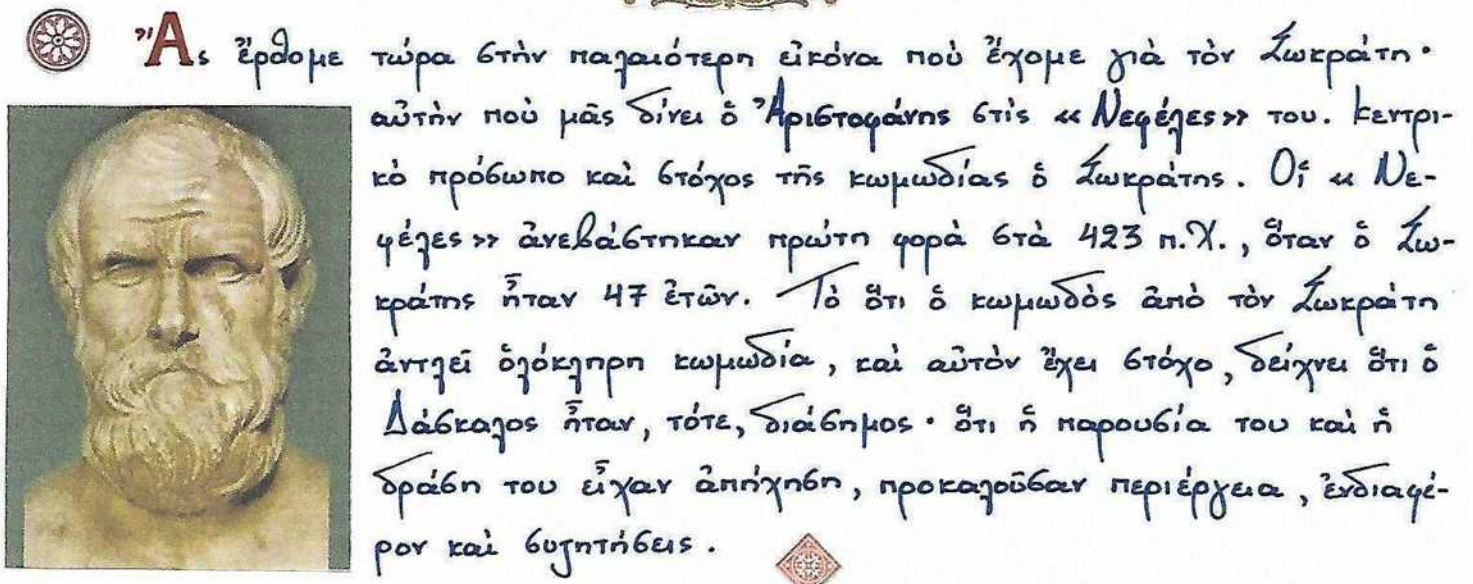 Ἄς ἔρθομε τώρα στὴν παλαιότερη εἰκόνα ποὺ ἔχομε γιὰ τὸν Σωκράτη·
αὐτὴν ποὺ μᾶς δίνει ὁ Ἀριστοφάνης στὶς «Νεφέλες» του. Κεντρι-
κὸ πρόσωπο καὶ στόχος τῆς κωμωδίας ὁ Σωκράτης. Οἱ «Νε-
φέλες» ἀνεβάστηκαν πρώτη φορὰ στὰ 423 π.Χ., ὅταν ὁ Σω-
κράτης ἦταν 47 ἐτῶν. Τὸ ὅτι ὁ κωμωδὸς ἀπὸ τὸν Σωκράτη
ἀντλεῖ ὁλόκληρη κωμωδία, καὶ αὐτὸν ἔχει στόχο, δείχνει ὅτι ὁ
Δάσκαλος ἦταν, τότε, διάσημος· ὅτι ἡ παρουσία του καὶ ἡ
δράση του εἶχαν ἀπήχηση, προκαλοῦσαν περιέργεια, ἐνδιαφέ-
ρον καὶ συζητήσεις.